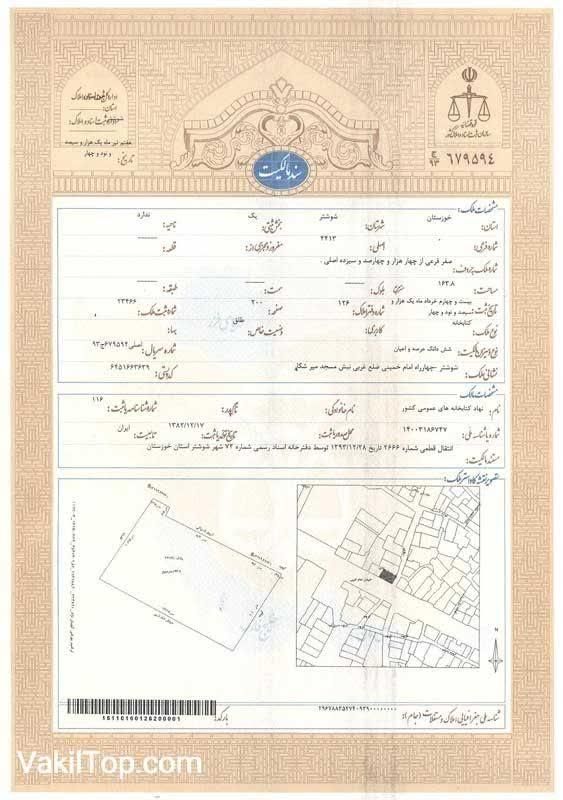 اداره ثبت اسناد و املاک
استان:
ثبت اسناد و املاک:
هفتم تیر ماه یک هزار و سیصد
و نود و چهار
تاریخ:
قوه قضائیه
سازمان ثبت اسناد و املاک کشور
۶۷۹۵۹۴ ج ۹۳
سند مالکیت
مشخصات ملک:
استان: خوزستان شهرستان: شوشتر بخش ثبتی: یک ناحیه: ندارد
شماره فرعی: ۰ اصلی: ۴۴۱۳ مفروز و مجزی از: ------ قطعه: ------
شماره ملک بحروف: صفر فرعی از چهار هزار و چهارصد و سیزده اصلی .
مساحت: ۱۶۳.۸ مترمربع بلوک: ------ سمت: ------ طبقه: ------
تاریخ ثبت: بیست و چهارم خرداد ماه یک هزار و سیصد و نود و چهار شماره دفتر املاک: ۱۲۶ صفحه: ۲۰۰ شماره ثبت ملک: ۲۳۴۶۶
نوع ملک: کتابخانه کاربری: وضعیت خاص: طلق بها:
میزان مالکیت: شش دانگ عرصه و اعیان شماره سریال: اصلی۶۷۹۵۹۴ج۹۳
نشانی ملک: شوشتر -چهارراه امام خمینی ضلع غربی نبش مسجد میر شکار کد پستی: ۶۴۵۱۶۶۳۶۳۹
مشخصات مالک
نام: نهاد کتابخانه های عمومی کشور نام خانوادگی: نام پدر: شماره شناسنامه یا ثبت: ۱۱۶
شماره یا شناسه ملی: ۱۴۰۰۳۱۸۶۷۴۷ محل صدور یا ثبت: تاریخ تولد یا ثبت: ۱۳۸۲/۱۲/۱۷ تابعیت: ایران
مستند مالکیت: انتقال قطعی شماره ۲۶۶۶ تاریخ ۱۳۹۳/۱۲/۲۸ توسط دفترخانه اسناد رسمی شماره ۷۲ شهر شوشتر استان خوزستان
تصویر نقشه کاداستر ملک:
N
بارکد:
15110160126200001
شناسه ملی جغرافیایی املاک و مستغلات (جام):
VakilTop.com